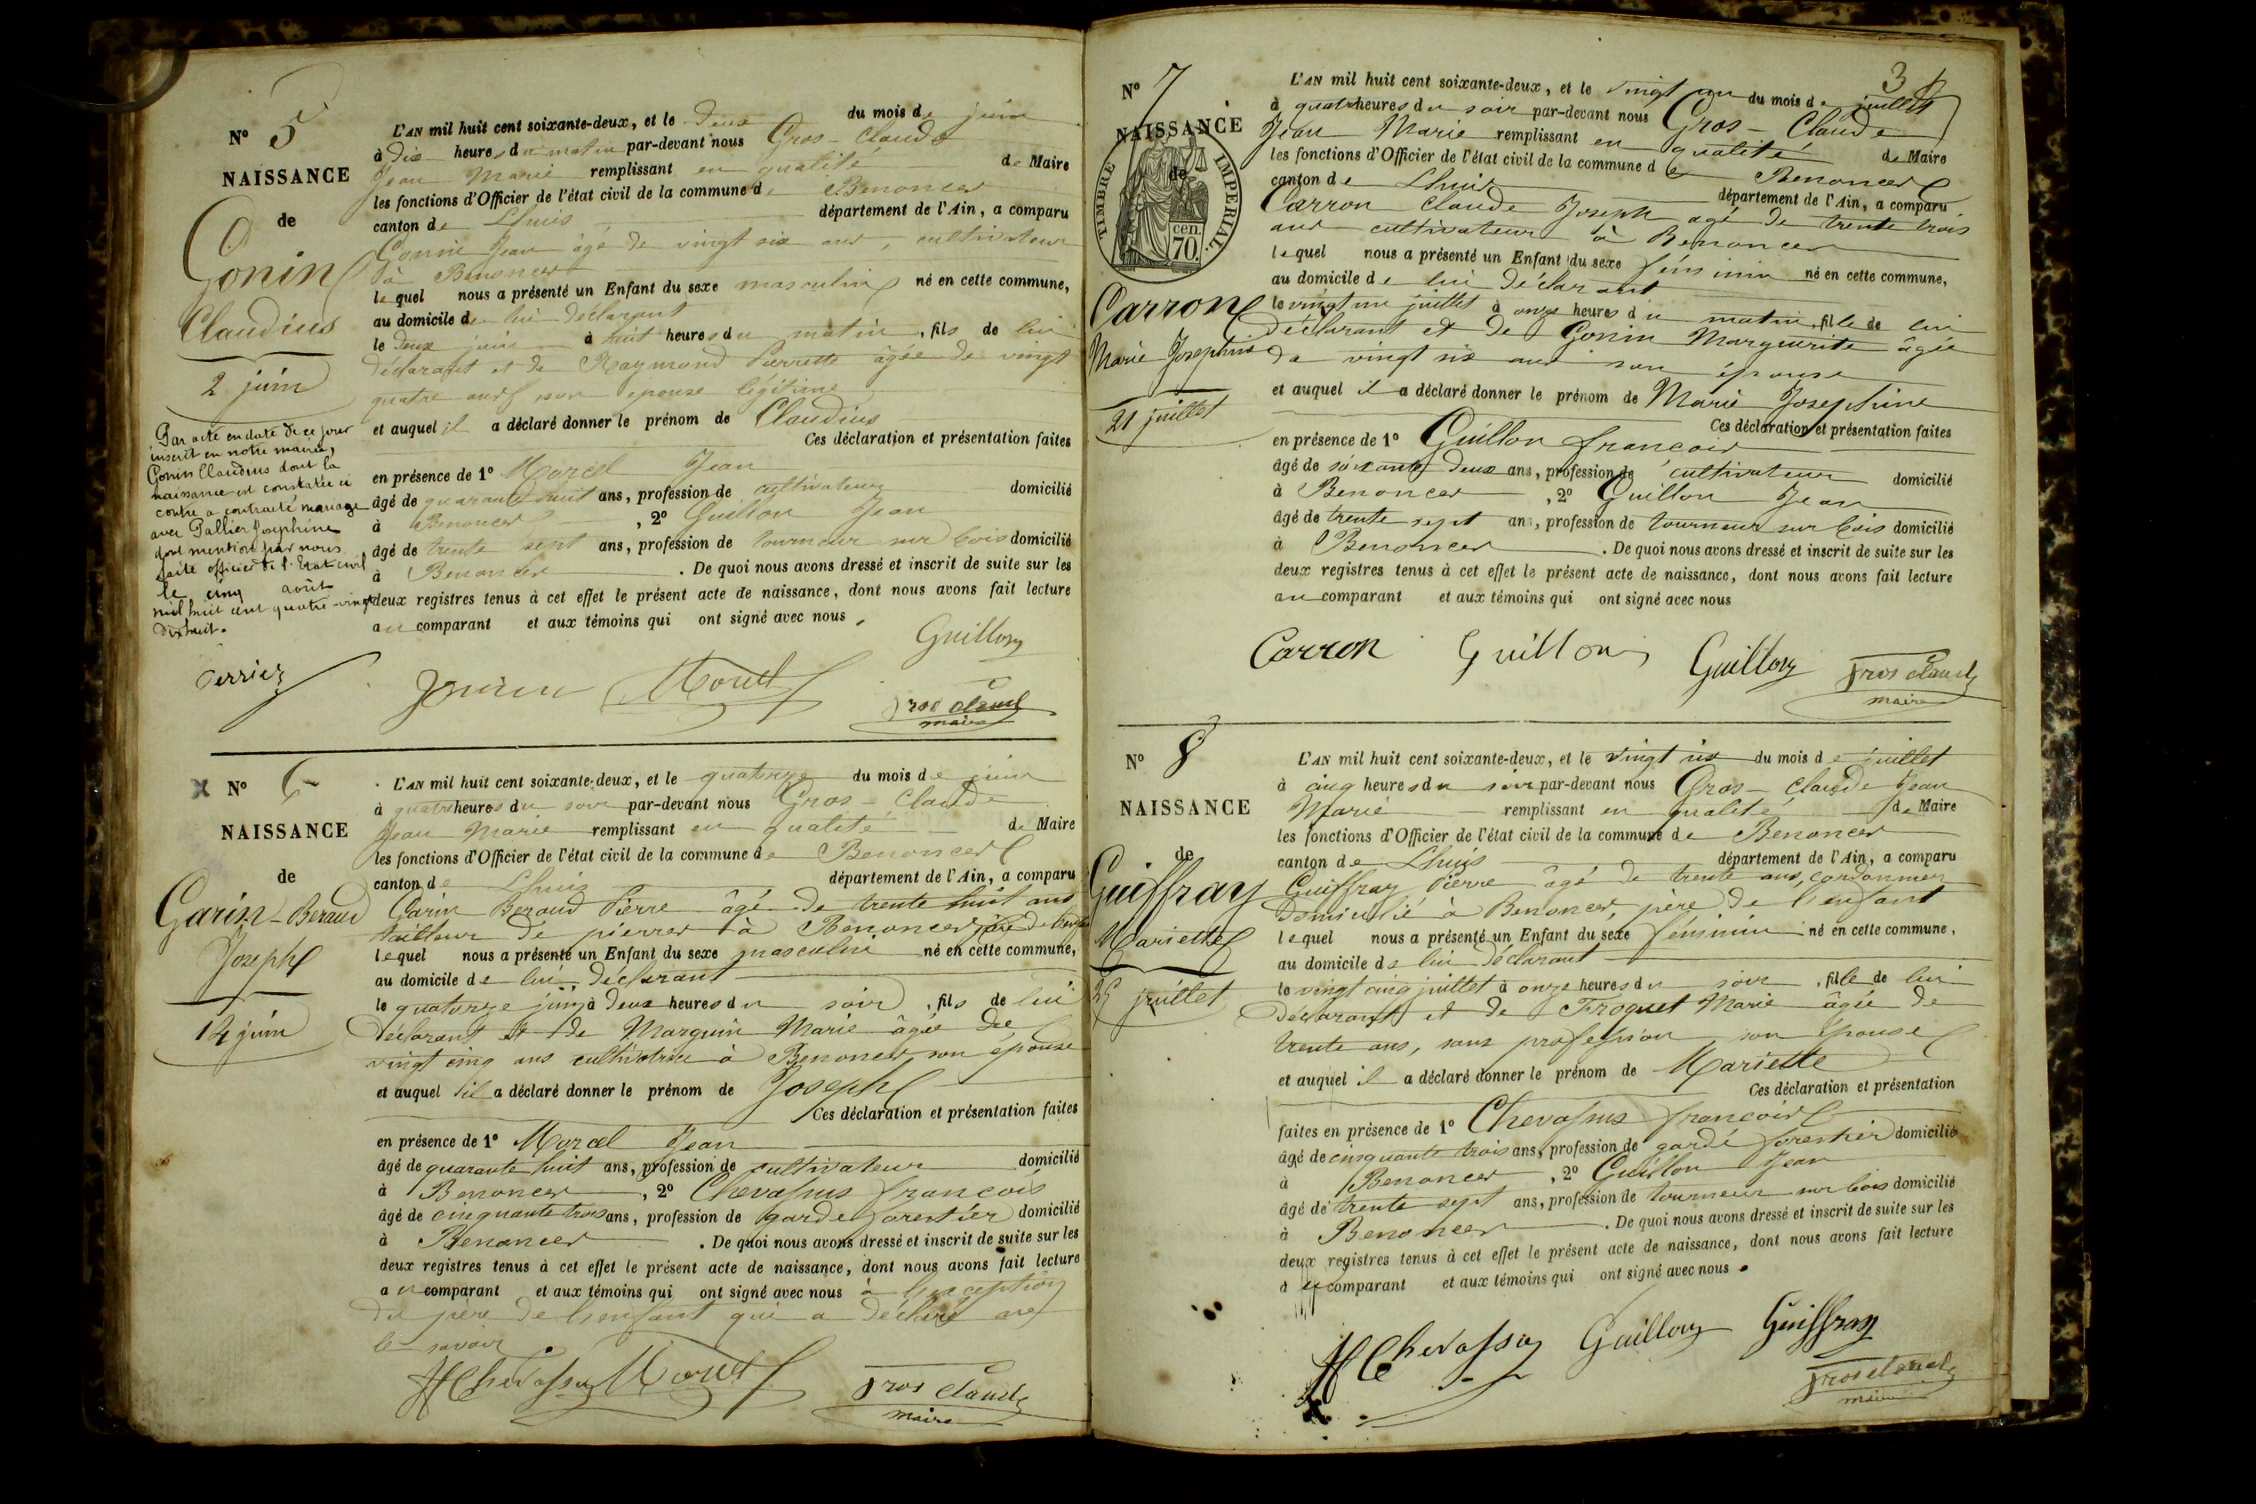 N° 5
NAISSANCE
de
Gonin
Claudius
2 juin
Par acte en date de ce jour
inscrit en notre mairie,
Gonin Claudius dont la
naissance est constatée ci
contre a contracté mariage
avec Pallier Joséphine
dont mention par nous
faite officier de l'Etat civil
le cinq août
mil huit cent quatre-vingt
dix huit.
Perrier
L'AN mil huit cent soixante-deux, et le deux du mois de juin
à dix heures du matin par-devant nous Gros-Claude
Jean Marie remplissant en qualité de Maire
les fonctions d'Officier de l'état civil de la commune de Benonces
canton de Lhuis département de l'Ain, a comparu
Gonin Jean âgé de vingt six ans, cultivateur
à Benonces
lequel nous a présenté un Enfant du sexe masculin né en cette commune,
au domicile de lui déclarant
le deux juin à huit heures du matin, fils de lui
déclarant et de Raymond Pierrette âgée de vingt
quatre ans son épouse légitime
et auquel il a déclaré donner le prénom de Claudius
Ces déclaration et présentation faites
en présence de 1° Morel Jean
âgé de quarante huit ans, profession de cultivateur domicilié
à Benonces, 2° Guillon Jean
âgé de trente sept ans, profession de tourneur sur bois domicilié
à Benonces. De quoi nous avons dressé et inscrit de suite sur les
deux registres tenus à cet effet le présent acte de naissance, dont nous avons fait lecture
au comparant et aux témoins qui ont signé avec nous.
Gonin Morel Guillon
Gros Claude
maire
N° 6
NAISSANCE
de
Garin-Beraud
Joseph
14 juin
L'AN mil huit cent soixante-deux, et le quatorze du mois de juin
à quatre heures du soir par-devant nous Gros-Claude
Jean Marie remplissant en qualité de Maire
les fonctions d'Officier de l'état civil de la commune de Benonces
canton de Lhuis département de l'Ain, a comparu
Garin Beraud Pierre âgé de trente huit ans
tailleur de pierres à Benonces père de l'enfant
lequel nous a présenté un Enfant du sexe masculin né en cette commune,
au domicile de lui déclarant
le quatorze juin à deux heures du soir, fils de lui
déclarant et de Marguin Marie âgée de
vingt cinq ans cultivatrice à Benonces son épouse
et auquel il a déclaré donner le prénom de Joseph
Ces déclaration et présentation faites
en présence de 1° Morel Jean
âgé de quarante huit ans, profession de cultivateur domicilié
à Benonces, 2° Chevassus françois
âgé de cinquante trois ans, profession de garde forestier domicilié
à Benonces. De quoi nous avons dressé et inscrit de suite sur les
deux registres tenus à cet effet le présent acte de naissance, dont nous avons fait lecture
au comparant et aux témoins qui ont signé avec nous à l'exception
du père de l'enfant qui a déclaré ne
le savoir
Chevassus Morel Gros Claude
maire
3
N° 7
NAISSANCE
de
TIMBRE IMPERIAL
70 cen.
Carron
Marie Joséphine
21 juillet
L'AN mil huit cent soixante-deux, et le vingt un du mois de juillet
à quatre heures du soir par-devant nous Gros-Claude
Jean Marie remplissant en qualité de Maire
les fonctions d'Officier de l'état civil de la commune de Benonces
canton de Lhuis département de l'Ain, a comparu
Carron Claude Joseph agé de trente trois
ans cultivateur à Benonces
lequel nous a présenté un Enfant du sexe féminin né en cette commune,
au domicile de lui déclarant
le vingt un juillet à onze heures du matin, fille de lui
déclarant et de Gonin Marguerite âgée
de vingt six ans son épouse
et auquel il a déclaré donner le prénom de Marie Josephine
Ces déclaration et présentation faites
en présence de 1° Guillon françois
âgé de soixante deux ans, profession de cultivateur domicilié
à Benonces, 2° Guillon Jean
âgé de trente sept ans, profession de tourneur sur bois domicilié
à Benonces. De quoi nous avons dressé et inscrit de suite sur les
deux registres tenus à cet effet le présent acte de naissance, dont nous avons fait lecture
au comparant et aux témoins qui ont signé avec nous
Carron Guillon Guillon Gros Claude
maire
N° 8
NAISSANCE
de
Guiffray
Mariette
25 juillet
L'AN mil huit cent soixante-deux, et le vingt six du mois de juillet
à cinq heures du soir par-devant nous Gros-Claude Jean
Marie remplissant en qualité de Maire
les fonctions d'Officier de l'état civil de la commune de Benonces
canton de Lhuis département de l'Ain, a comparu
Guiffray Pierre âgé de trente ans, cordonnier
domicilié à Benonces, père de l'enfant
lequel nous a présenté un Enfant du sexe féminin né en cette commune,
au domicile de lui déclarant
le vingt cinq juillet à onze heures du soir, fille de lui
déclarant et de Froquet Marie âgée de
trente ans, sans profession son épouse
et auquel il a déclaré donner le prénom de Mariette
Ces déclaration et présentation
faites en présence de 1° Chevassus françois
âgé de cinquante trois ans, profession de garde forestier domicilié
à Benonces, 2° Guillon Jean
âgé de trente sept ans, profession de tourneur sur bois domicilié
à Benonces. De quoi nous avons dressé et inscrit de suite sur les
deux registres tenus à cet effet le présent acte de naissance, dont nous avons fait lecture
au comparant et aux témoins qui ont signé avec nous.
Chevassus Guillon Guiffray
Gros Claude
maire